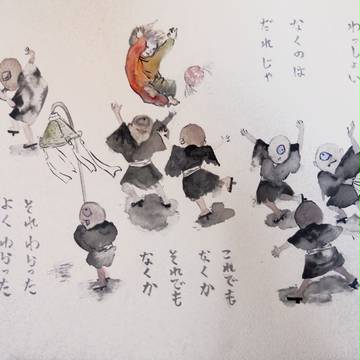 わっしょい
なくのは
だれじゃ
これでも
なくか
それでも
なくか
それわらった
よくわらった